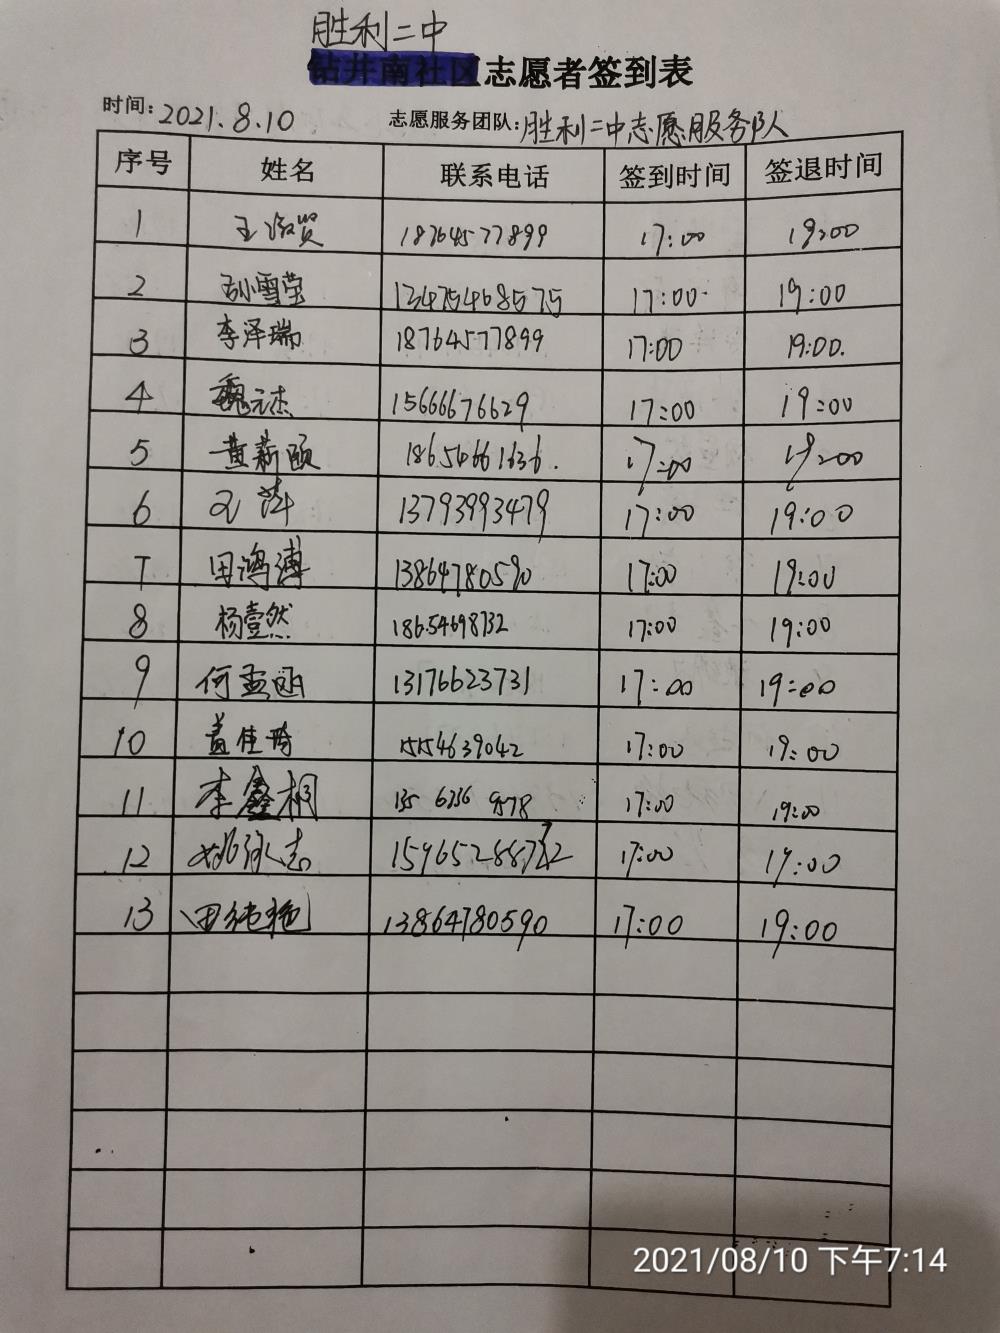 胜利二中
钻井南社区志愿者签到表
时间:2021.8.10 志愿服务团队:胜利二中志愿服务队
序号 姓名 联系电话 签到时间 签退时间
1 18764577899 17:00 19:00
2 孙雪莹 13475468575 17:00 19:00
3 李泽瑞 18764577899 17:00 19:00.
4 魏元杰 15666676629 17:00 19:00
5 黄薪颐 18654661636. 17:00 19:00
6 13793993479 17:00 19:00
7 田鸿溥 13864780590 17:00 19:00
8 杨壹然 18654698732 17:00 19:00
9 何孟函 13176623731 17:00 19:00
10 盖佳琦 15154639042 17:00 19:00
11 李鑫桐 135 6336 9578 17:00 19:00
12 17:00 19:00
13 田纯艳 13864780590 17:00 19:00
2021/08/10 下午7:14